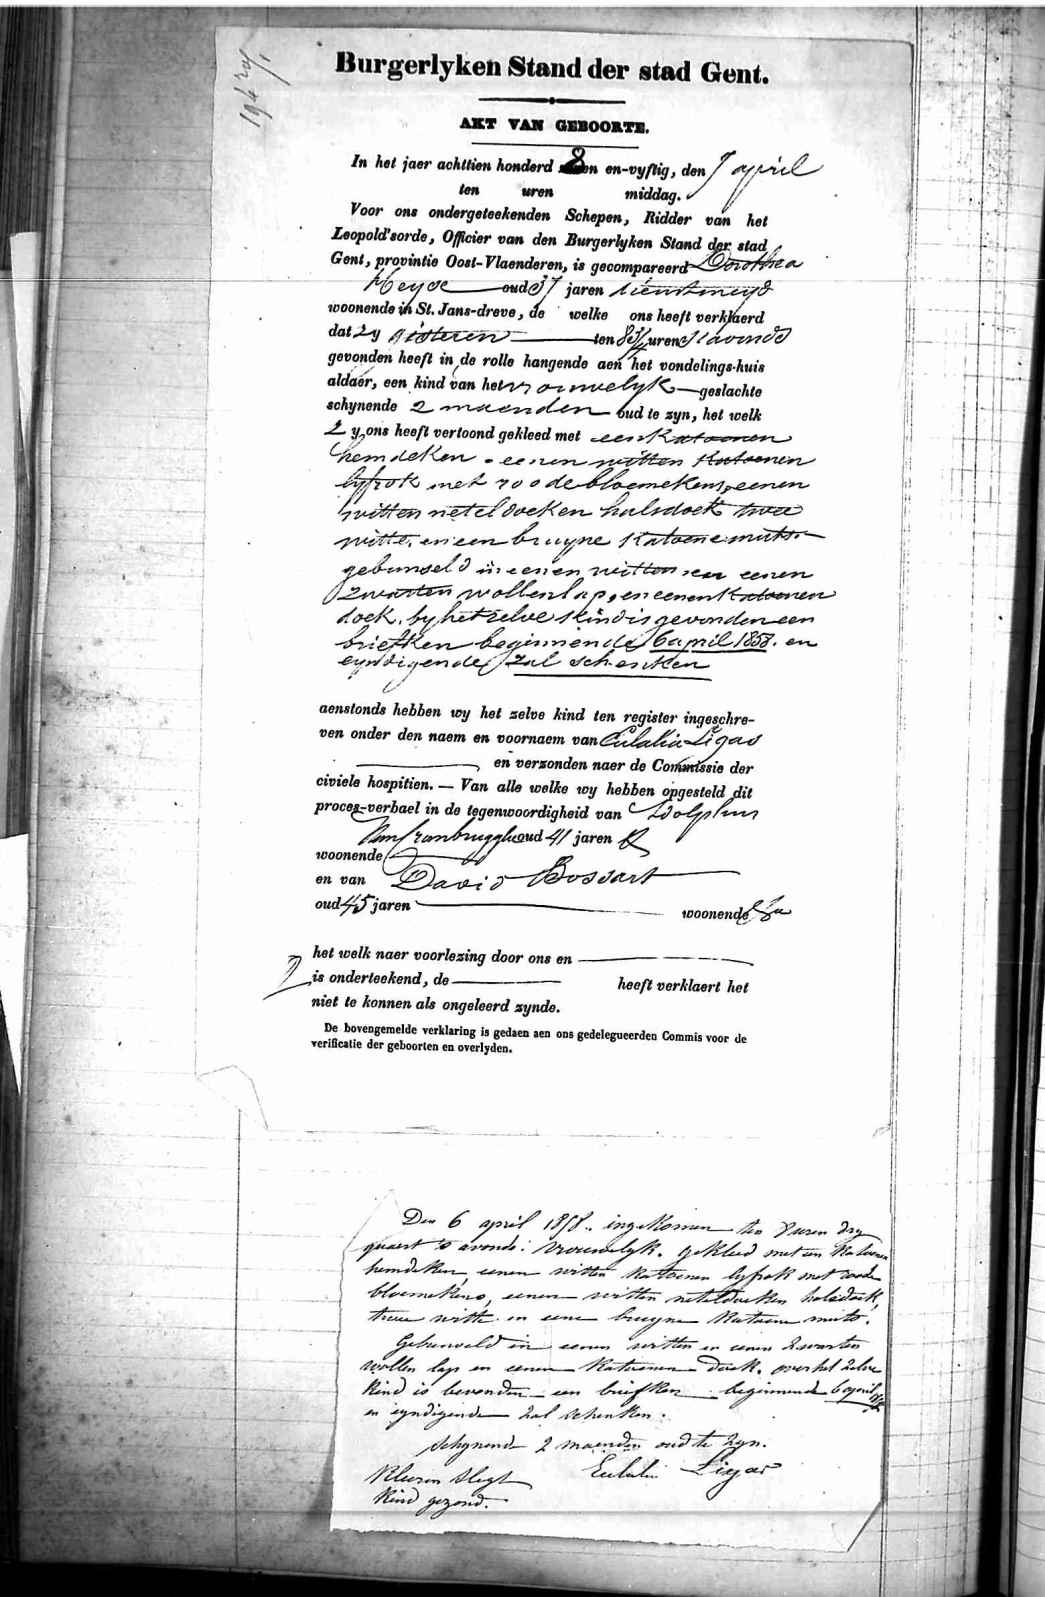 Burgerlyken Stand der stad Gent.
AKT VAN GEBOORTE.
In het jaer achttien honderd 8 en-vyftig, den 7 april
ten uren middag.
Voor ons ondergeteekenden Schepen, Ridder van het
Leopold'sorde, Officier van den Burgerlyken Stand der stad
Gent, provintie Oost-Vlaenderen, is gecompareerd Dorothea
Heyse oud 37 jaren dienstmeyd
woonende in St. Jans-dreve, de welke ons heeft verklaerd
dat zy gisteren ten 8 3/4 uren s'avonds
gevonden heeft in de rolle hangende aen het vondelings-huis
aldaer, een kind van het vrouwelyk geslachte
schynende 2 maenden oud te zyn, het welk
zy ons heeft vertoond gekleed met een katoenen
hemdeken, eenen witten katoenen
lyfrok met roode bloemekens, eenen
witten neteldoeken halsdoek twee
witte en een bruyne katoene muts
gebunseld in eenen witten en eenen
zwarten wollen lap, en eenen katoenen
doek. by het zelve kind is gevonden een
briefken beginnende 6 april 1858. en
eyndigende zal schenken
aenstonds hebben wy het zelve kind ten register ingeschre-
ven onder den naem en voornaem van Eulalia Ligas
en verzonden naer de Commissie der
civiele hospitien. — Van alle welke wy hebben opgesteld dit
proces-verbael in de tegenwoordigheid van Adolphus
Van Cranbrugghe oud 41 jaren
woonende
en van David Bossart
oud 45 jaren woonende
het welk naer voorlezing door ons en
is onderteekend, de heeft verklaert het
niet te konnen als ongeleerd zynde.
De bovengemelde verklaring is gedaen aen ons gedelegueerden Commis voor de
verificatie der geboorten en overlyden.
Den 6 april 1858. ingekomen ten 8 uren dry
quaert 's avonds: vrouwelyk. gekleed met een katoenen
hemdeken, eenen witten katoenen lyfrok met roode
bloemekens, eenen witten neteldoeken halsdoek,
twee witte en eene bruyne katoene muts.
Gebunseld in eenen witten en eenen zwarten
wollen lap en eenen katoenen doek. over het zelve
kind is bevonden een briefken beginnende 6 april 1858
en eyndigende zal schenken.
schynende 2 maenden oud te zyn.
Kleeren slegt Eulalia Ligas
kind gezond.